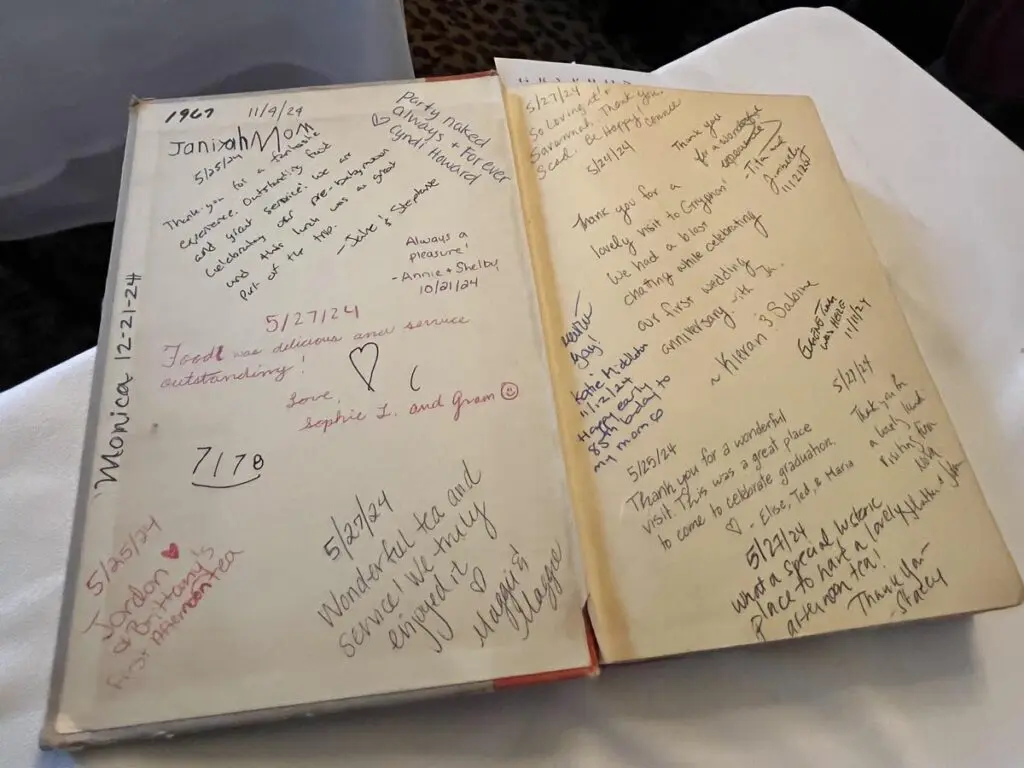 1967
11/9/24
Janiyah Mom
5/25/24
Thank you for a fantastic
experience. Outstanding food
and great service! We are
celebrating our pre-babymoon
and this lunch was a great
part of the trip.
Party naked
always + Forever
♡ Cyndi Howard
Always a
pleasure!
- Annie + Shelby
10/21/24
Monica 12-21-24
5/27/24
Food was delicious and service
outstanding!
Love,
Sophie L. and Gram ☺
7178
5/25/24
Jordan ♥
& Brittany's
First Afternoon tea
5/27/24
Wonderful tea and
service! We truly
enjoyed it
♡
Maggie
5/27/24
So Loving it +
Savannah. Thank you,
Scad. Be Happy!
5/24/24
Thank you
for a wonderful
experience
Thank you for a
lovely visit to Gryphon!
We had a blast
chatting while celebrating
our first wedding
anniversary with
~ Kieran & Sabine
was HERE
11/1/24
11/21/24
Happy early
85th bday to
my mom
5/25/24
Thank you for a wonderful
visit. This was a great place
to come to celebrate graduation.
♡ - Elise, Ted, & Maria
5/27/24
Thank you for
a lovely lunch
visiting from
5/27/24
What a special historic
place to have a lovely
afternoon tea!
Thank you-
- Stacey